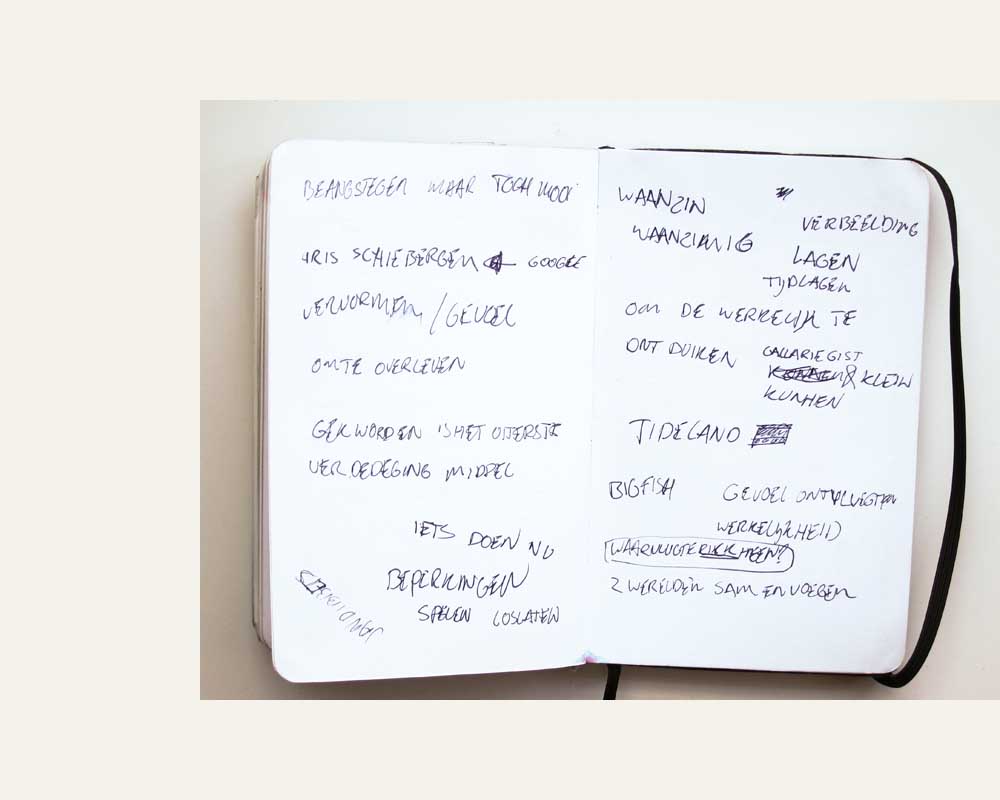 BEANGSTEGEN MAAR TOCH MOOI
IRIS SCHIEBERGEN GOOGLE
VERVORMEN / GEVOEL
OMTE OVERLEVEN
GEK WORDEN ISHET UITERSTE
VERDEDEGING MIDDEL
IETS DOEN NU
BEPERKINGEN
SPELEN LOSLATEN
WAANZIN
VERBEELDING
WAANZINNIG
LAGEN
TIJDLAGEN
OM DE WERKELIJK TE
ONT DUIKEN
& KLEIN
KUNNEN
TIDELAND
BIGFISH
GEVOEL ONTVLUGTEN
WERKELIJKHEID
WAARVLUGTERIKKHEEN?
2 WERELDEN SAMENVOEGEN